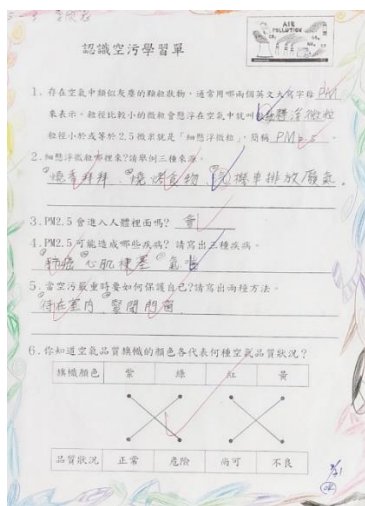 認識空污學習單
AIR POLLUTION
1. 存在空氣中類似灰塵的顆粒狀物,通常用哪兩個英文大寫字母 PM
來表示。粒徑比較小的微粒會懸浮在空氣中就叫 懸浮微粒
粒徑小於或等於 2.5 微米就是「細懸浮微粒」,簡稱 PM2.5。
2. 細懸浮微粒哪裡來?請舉例三種來源。
燒香拜拜、燒烤食物、汽機車排放廢氣。
3. PM2.5 會進入人體裡面嗎? 會
4. PM2.5 可能造成哪些疾病?請寫出三種疾病。
肺癌 心肌梗塞 氣喘
5. 當空污嚴重時要如何保護自己?請寫出兩種方法。
待在室內、緊閉門窗
6. 你知道空氣品質旗幟的顏色各代表何種空氣品質狀況?
旗幟顏色 紫 綠 紅 黃
品質狀況 正常 危險 尚可 不良